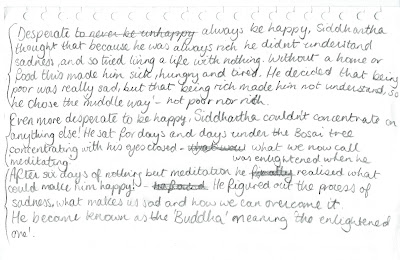 Desperate to never be unhappy always be happy, Siddhartha
thought that because he was always rich he didnt understand
sadness, and so tried living a life with nothing. Without a home or
food this made him sick, hungry and tired. He decided that being
poor was really sad, but that being rich made him not understand, so
he chose the middle way' - not poor nor rich.
Even more desperate to be happy, Siddhartha couldn't concentrate on
anything else! He sat for days and days under the Bosai tree
concentrating with his eyes closed - what we now call
meditating
was enlightened when he
After six days of nothing but meditation he finally realised what
could make him happy! - he found He figured out the process of
sadness, what makes us sad and how we can overcome it.
He became known as the 'Buddha' meaning 'the enlightened
one'.